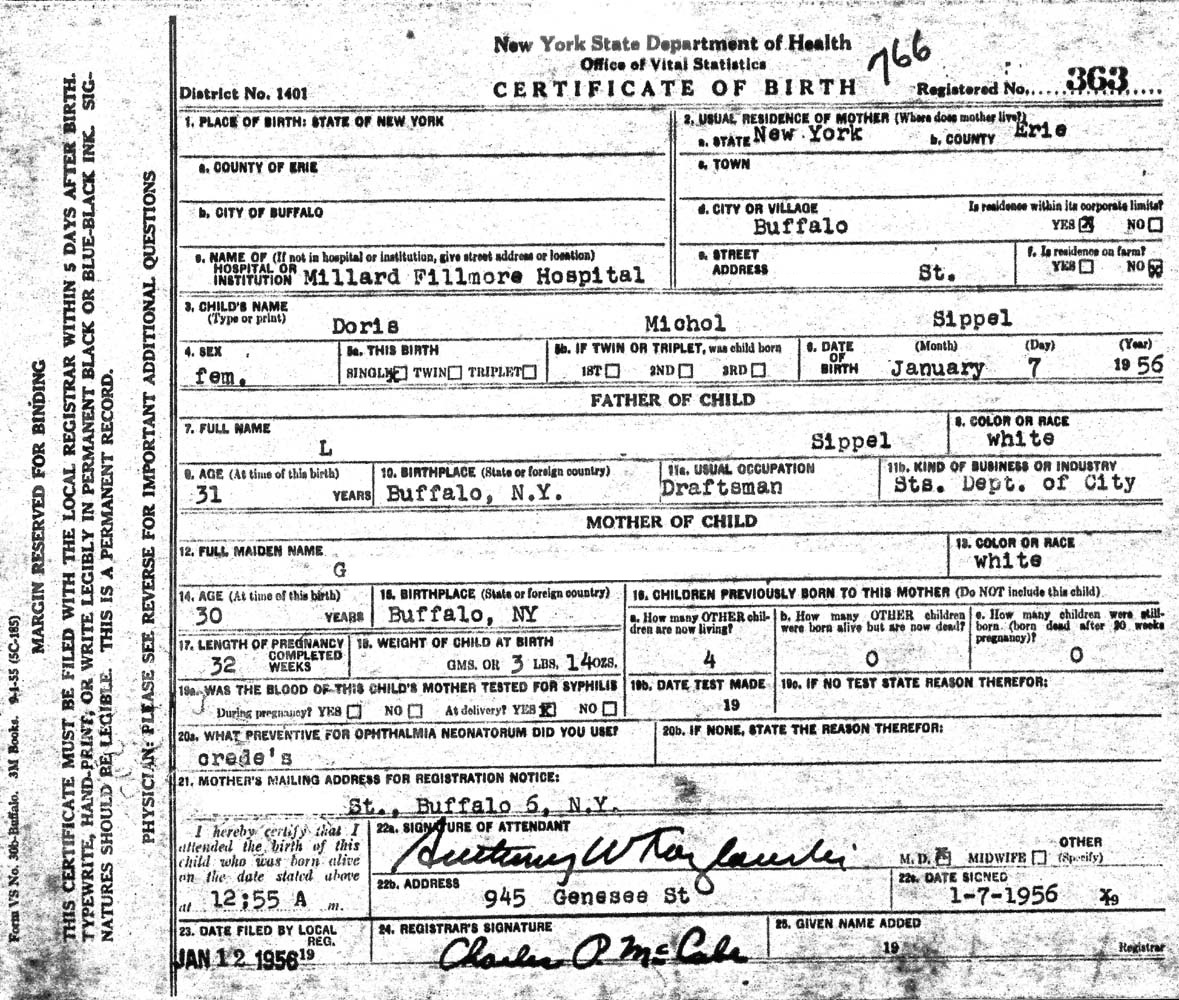 New York State Department of Health
Office of Vital Statistics
CERTIFICATE OF BIRTH
766
District No. 1401
Registered No. 363
1. PLACE OF BIRTH: STATE OF NEW YORK
a. COUNTY OF ERIE
b. CITY OF BUFFALO
c. NAME OF (If not in hospital or institution, give street address or location)
HOSPITAL OR
INSTITUTION Millard Fillmore Hospital
2. USUAL RESIDENCE OF MOTHER (Where does mother live?)
a. STATE New York b. COUNTY Erie
c. TOWN
d. CITY OR VILLAGE Is residence within its corporate limits?
Buffalo YES NO
e. STREET f. Is residence on farm?
ADDRESS St. YES NO
3. CHILD'S NAME
(Type or print) Doris Michol Sippel
4. SEX
fem.
5a. THIS BIRTH
SINGLE TWIN TRIPLET
5b. IF TWIN OR TRIPLET, was child born
1ST 2ND 3RD
6. DATE OF BIRTH (Month) (Day) (Year)
January 7 1956
FATHER OF CHILD
7. FULL NAME
L Sippel
8. COLOR OR RACE
white
9. AGE (At time of this birth)
31 YEARS
10. BIRTHPLACE (State or foreign country)
Buffalo, N.Y.
11a. USUAL OCCUPATION
Draftsman
11b. KIND OF BUSINESS OR INDUSTRY
Sts. Dept. of City
MOTHER OF CHILD
12. FULL MAIDEN NAME
G
13. COLOR OR RACE
white
14. AGE (At time of this birth)
30 YEARS
15. BIRTHPLACE (State or foreign country)
Buffalo, NY
16. CHILDREN PREVIOUSLY BORN TO THIS MOTHER (Do NOT include this child)
a. How many OTHER chil-
dren are now living?
4
b. How many OTHER children
were born alive but are now dead?
0
c. How many children were still-
born (born dead after 20 weeks
pregnancy)?
0
17. LENGTH OF PREGNANCY
COMPLETED
32 WEEKS
18. WEIGHT OF CHILD AT BIRTH
GMS. OR 3 LBS. 14 OZS.
19a. WAS THE BLOOD OF THIS CHILD'S MOTHER TESTED FOR SYPHILIS
During pregnancy? YES NO At delivery? YES NO
19b. DATE TEST MADE
19
19c. IF NO TEST STATE REASON THEREFOR:
20a. WHAT PREVENTIVE FOR OPHTHALMIA NEONATORUM DID YOU USE?
crede's
20b. IF NONE, STATE THE REASON THEREFOR:
21. MOTHER'S MAILING ADDRESS FOR REGISTRATION NOTICE:
St., Buffalo 6, N.Y.
I hereby certify that I
attended the birth of this
child who was born alive
on the date stated above
at 12:55 A m.
22a. SIGNATURE OF ATTENDANT
M.D. MIDWIFE OTHER
(Specify)
22b. ADDRESS
945 Genesee St
22c. DATE SIGNED
1-7-1956 19
23. DATE FILED BY LOCAL
REG.
JAN 12 1956 19
24. REGISTRAR'S SIGNATURE
Charles P McCabe
25. GIVEN NAME ADDED
19 Registrar
Form VS No. 30b-Buffalo. 3M Books. 9-1-55 (5C-185)
MARGIN RESERVED FOR BINDING
THIS CERTIFICATE MUST BE FILED WITH THE LOCAL REGISTRAR WITHIN 5 DAYS AFTER BIRTH.
TYPEWRITE, HAND-PRINT, OR WRITE LEGIBLY IN PERMANENT BLACK OR BLUE-BLACK INK. SIG-
NATURES SHOULD BE LEGIBLE. THIS IS A PERMANENT RECORD.
PHYSICIAN: PLEASE SEE REVERSE FOR IMPORTANT ADDITIONAL QUESTIONS